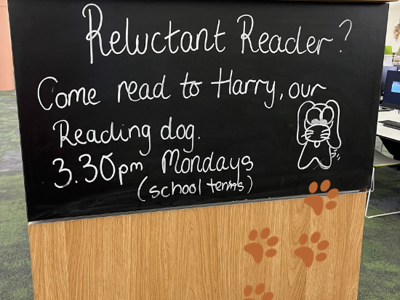 Reluctant Reader?
Come read to Harry, our
Reading dog.
3.30pm Mondays
(school terms)